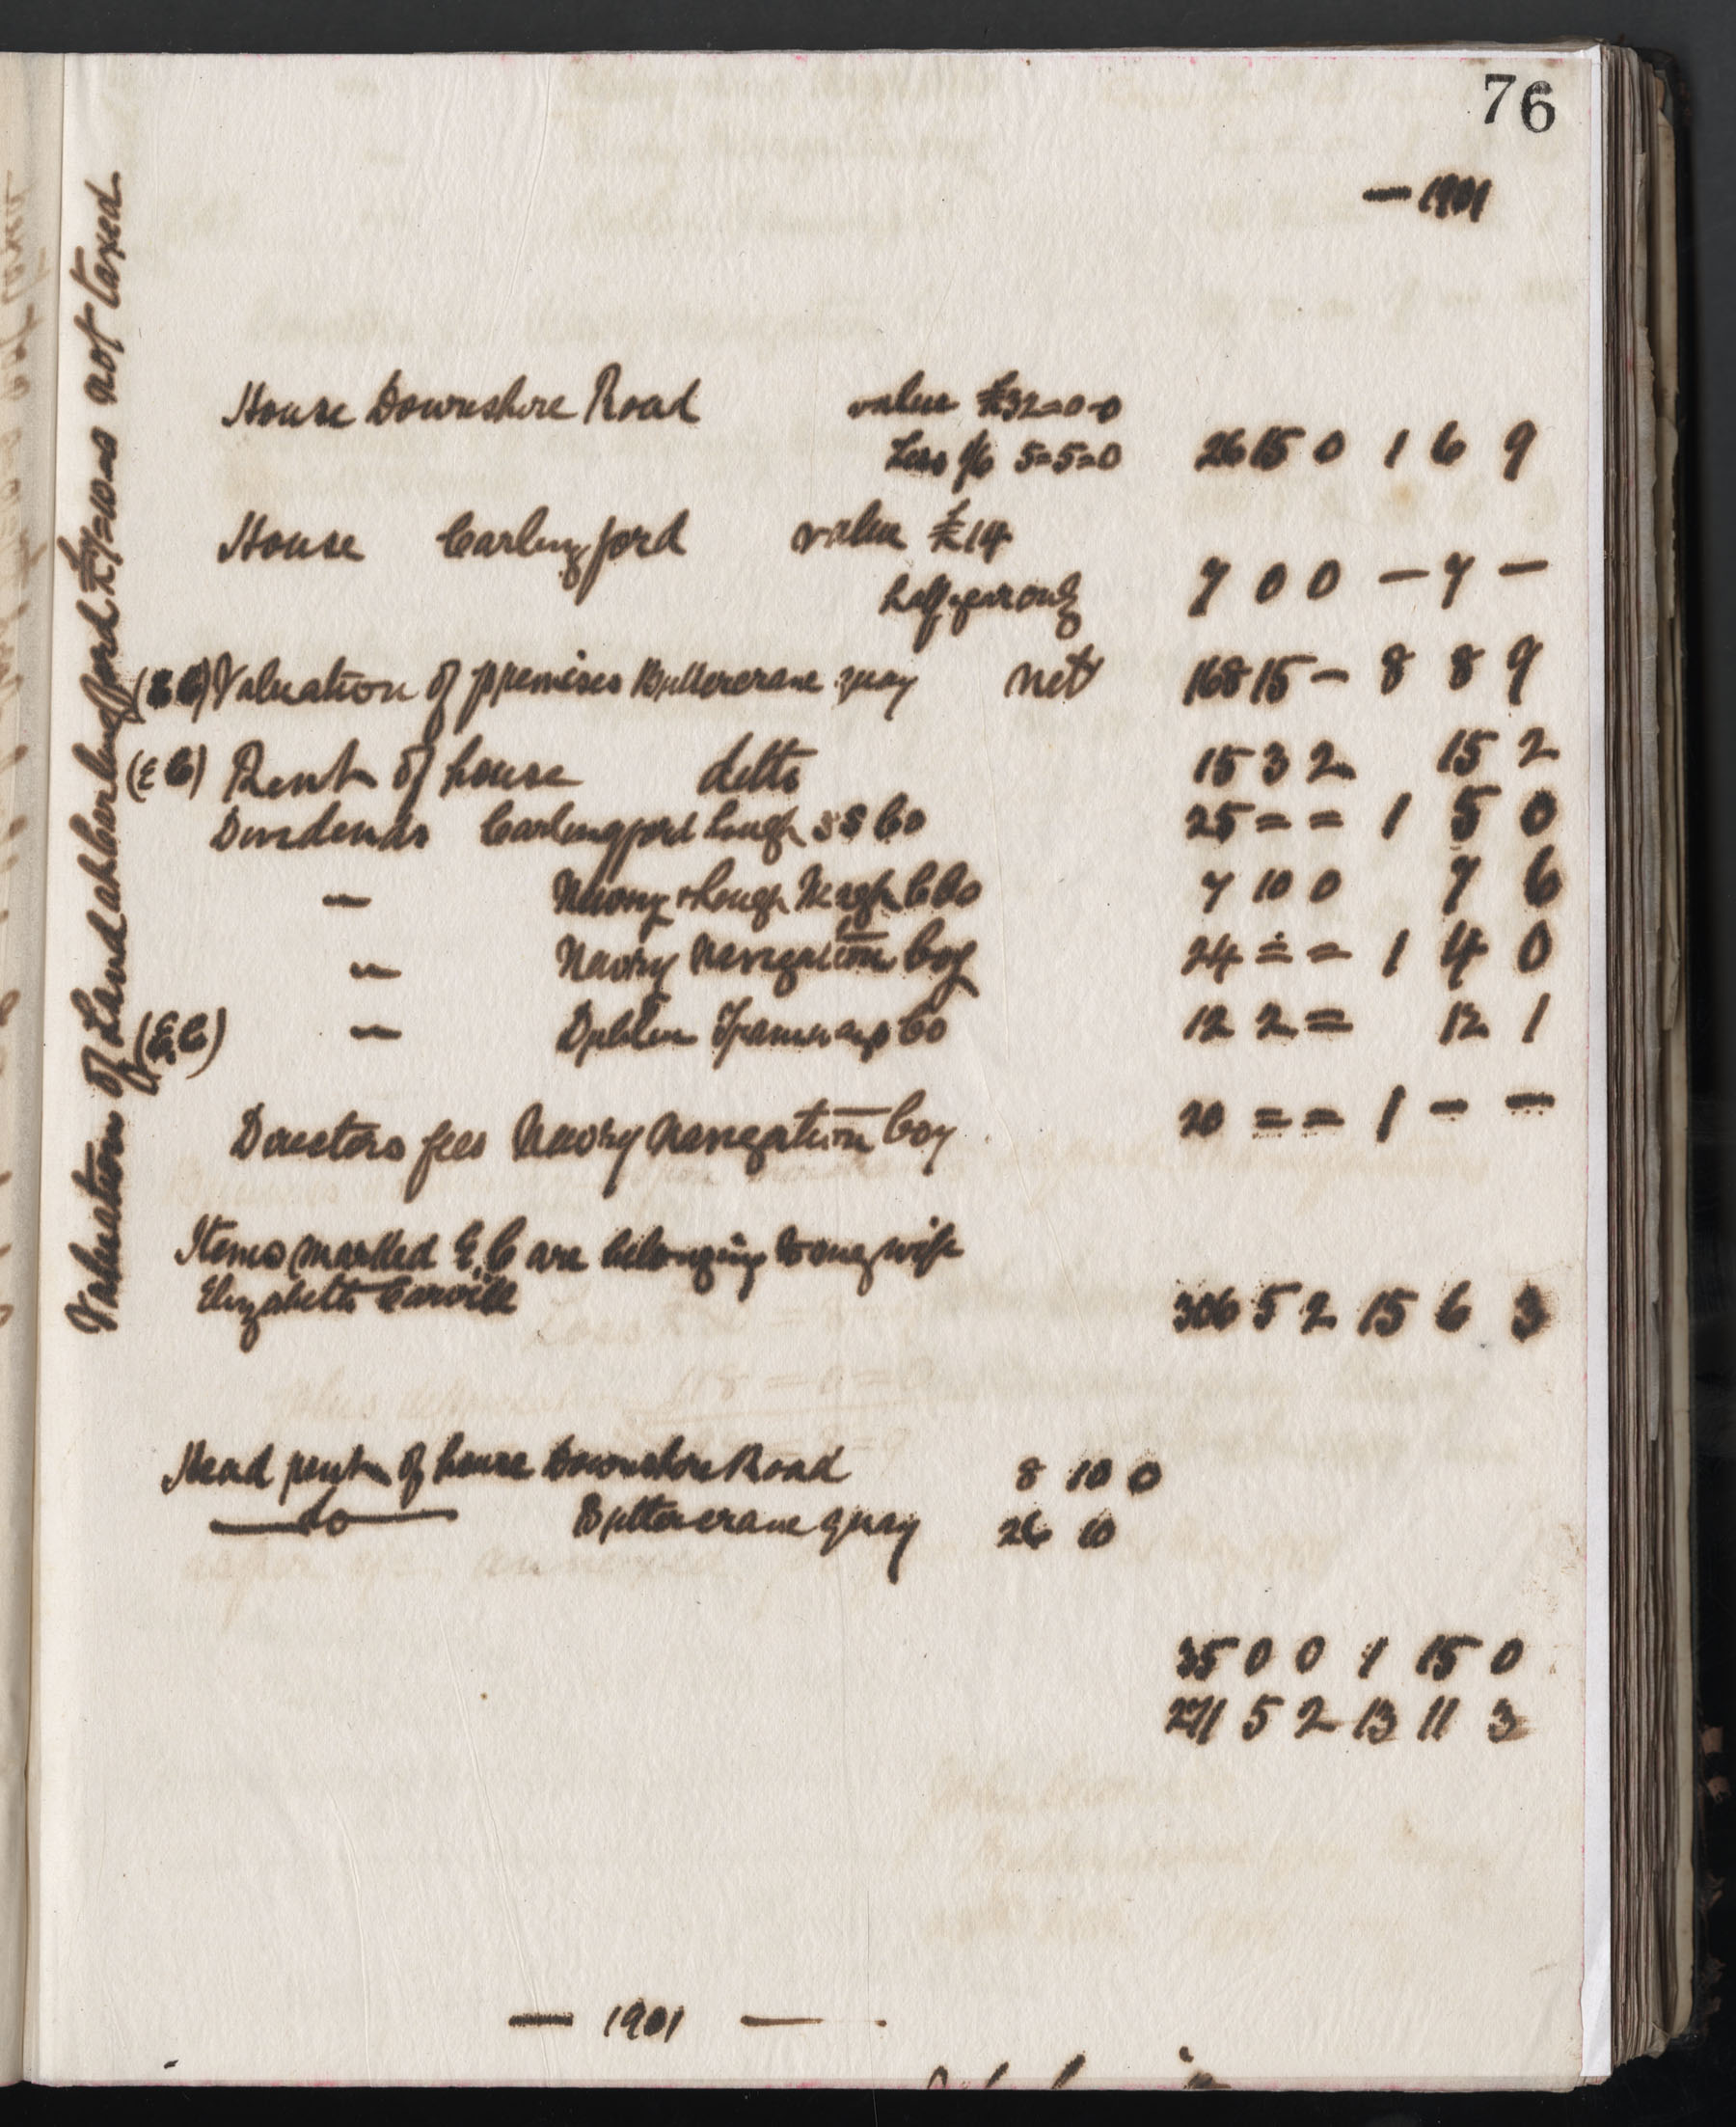 76
— 1901
House Downshire Road value £32=0-0
Less 1/6 5=5=0 26 15 0 1 6 9
House Carlingford value £14
half year only 7 0 0 — 7 —
(E C) Valuation of premises Buttercrane quay net 168 15 — 8 8 9
(E C) Rent of house ditto 15 3 2 15 2
Dividends Carlingford Lough S S Co 25 = = 1 5 0
— Newry & Lough Neagh C Co 7 10 0 7 6
— Newry Navigation Coy 24 = = 1 4 0
(E C) — Dublin Tramways Co 12 2 = 12 1
Directors fees Newry Navigation Coy 20 = = 1 — —
Items marked E.C are belonging to my wife
Elizabeth Carvill 306 5 2 15 6 3
Head rent of house Downshire Road 8 10 0
— do — Buttercrane quay 26 10
35 0 0 1 15 0
271 5 2 13 11 3
— 1901 —
Valuation of Land at Carlingford £7=10 was not taxed